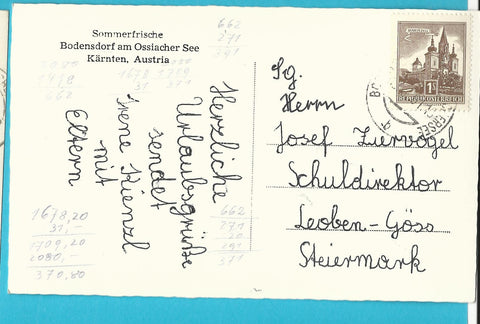 Sommerfrische
Bodensdorf am Ossiacher See
Kärnten, Austria
662
271
391
1678
31
662
Herzliche
Urlaubsgrüße
sendet
Irene Kienzl
mit
Eltern
Sg.
Herrn
Josef Ziervogel
Schuldirektor
Leoben-Göss
Steiermark
REPUBLIK ÖSTERREICH
1678,20
31,-
1709,20
2080,-
370.80
662
271
20
391
371